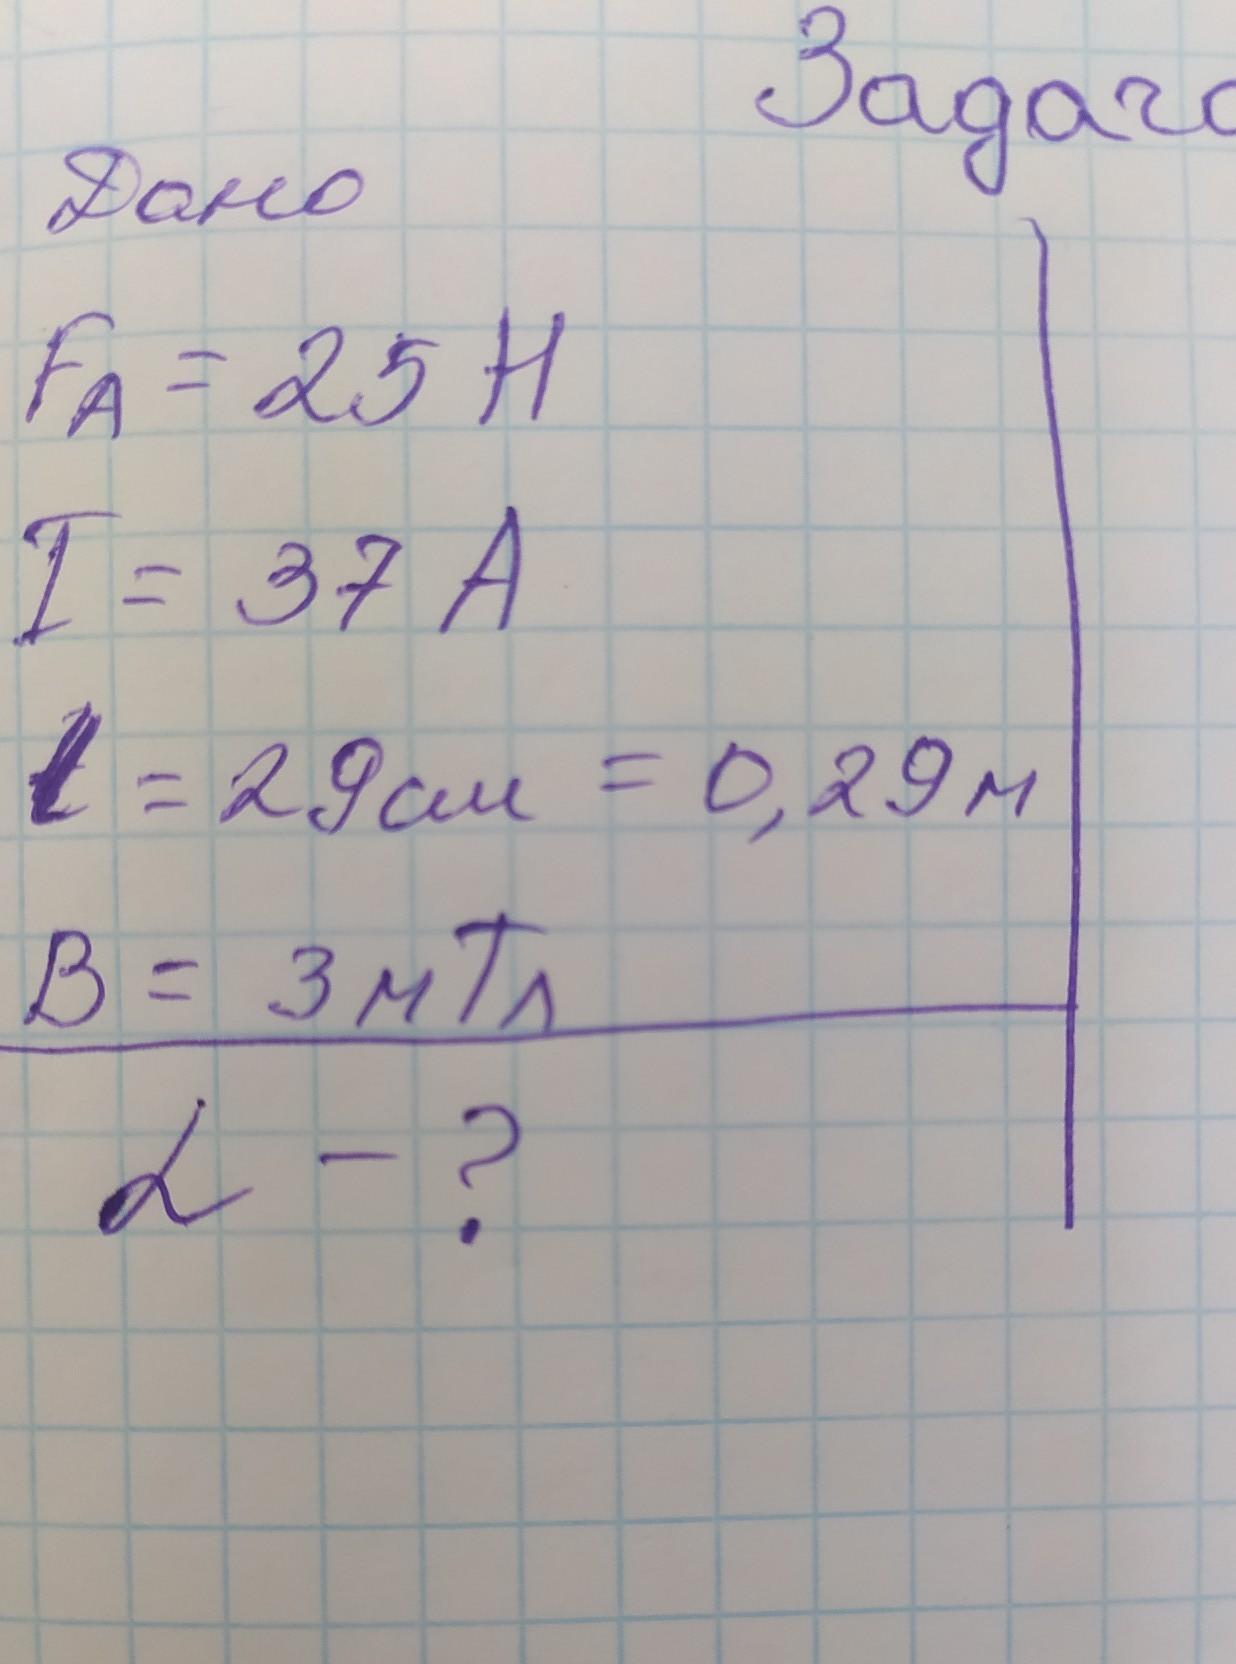 Задача
Дано
FА = 25 Н
I = 37 А
l = 29см = 0,29м
В = 3 мТл
α - ?